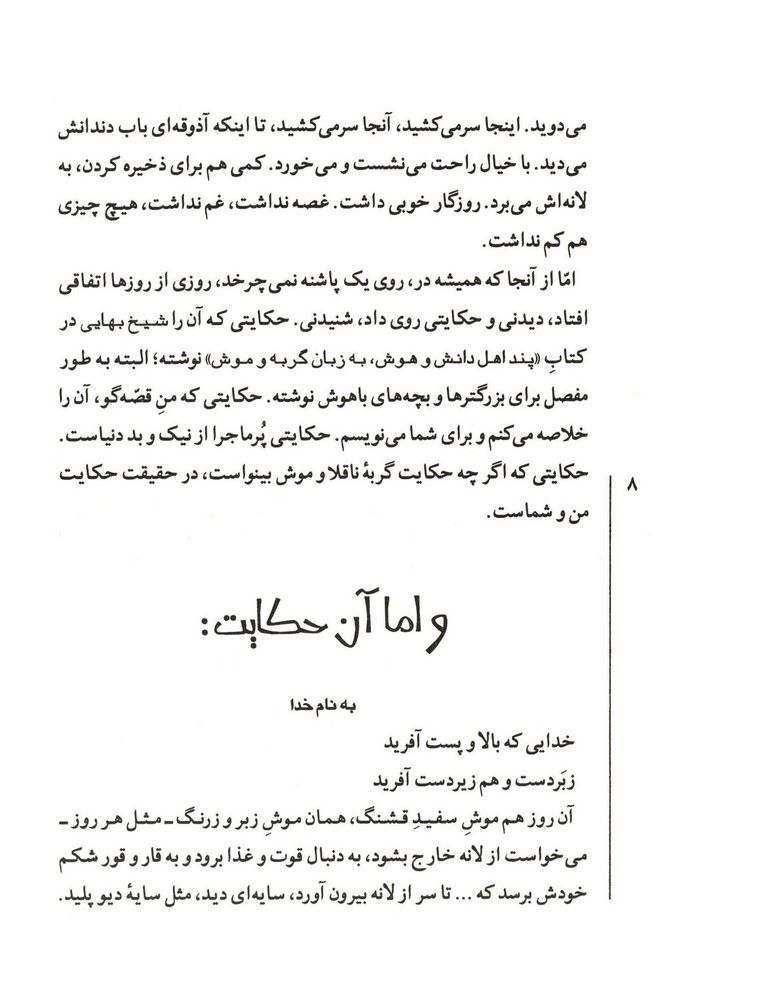 می‌دوید. اینجا سرمی‌کشید، آنجا سرمی‌کشید، تا اینکه آذوقه‌ای باب دندانش
می‌دید. با خیال راحت می‌نشست و می‌خورد. کمی هم برای ذخیره کردن، به
لانه‌اش می‌برد. روزگار خوبی داشت. غصه نداشت، غم نداشت، هیچ چیزی
هم کم نداشت.
امّا از آنجا که همیشه در، روی یک پاشنه نمی‌چرخد، روزی از روزها اتفاقی
افتاد، دیدنی و حکایتی روی داد، شنیدنی. حکایتی که آن را شیخ بهایی در
کتابِ «پند اهل دانش و هوش، به زبان گربه و موش» نوشته؛ البته به طور
مفصل برای بزرگترها و بچه‌های باهوش نوشته. حکایتی که منِ قصّه‌گو، آن را
خلاصه می‌کنم و برای شما می‌نویسم. حکایتی پُرماجرا از نیک و بد دنیاست.
حکایتی که اگر چه حکایت گربهٔ ناقلا و موش بینواست، در حقیقت حکایت
من و شماست.
۸
و اما آن حکایت:
به نام خدا
خدایی که بالا و پست آفرید
زبَردست و هم زیردست آفرید
آن روز هم موشِ سفیدِ قشنگ، همان موشِ زبر و زرنگ ـ مثل هر روز ـ
می‌خواست از لانه خارج بشود، به دنبال قوت و غذا برود و به قار و قور شکم
خودش برسد که ... تا سر از لانه بیرون آورد، سایه‌ای دید، مثل سایهٔ دیو پلید.